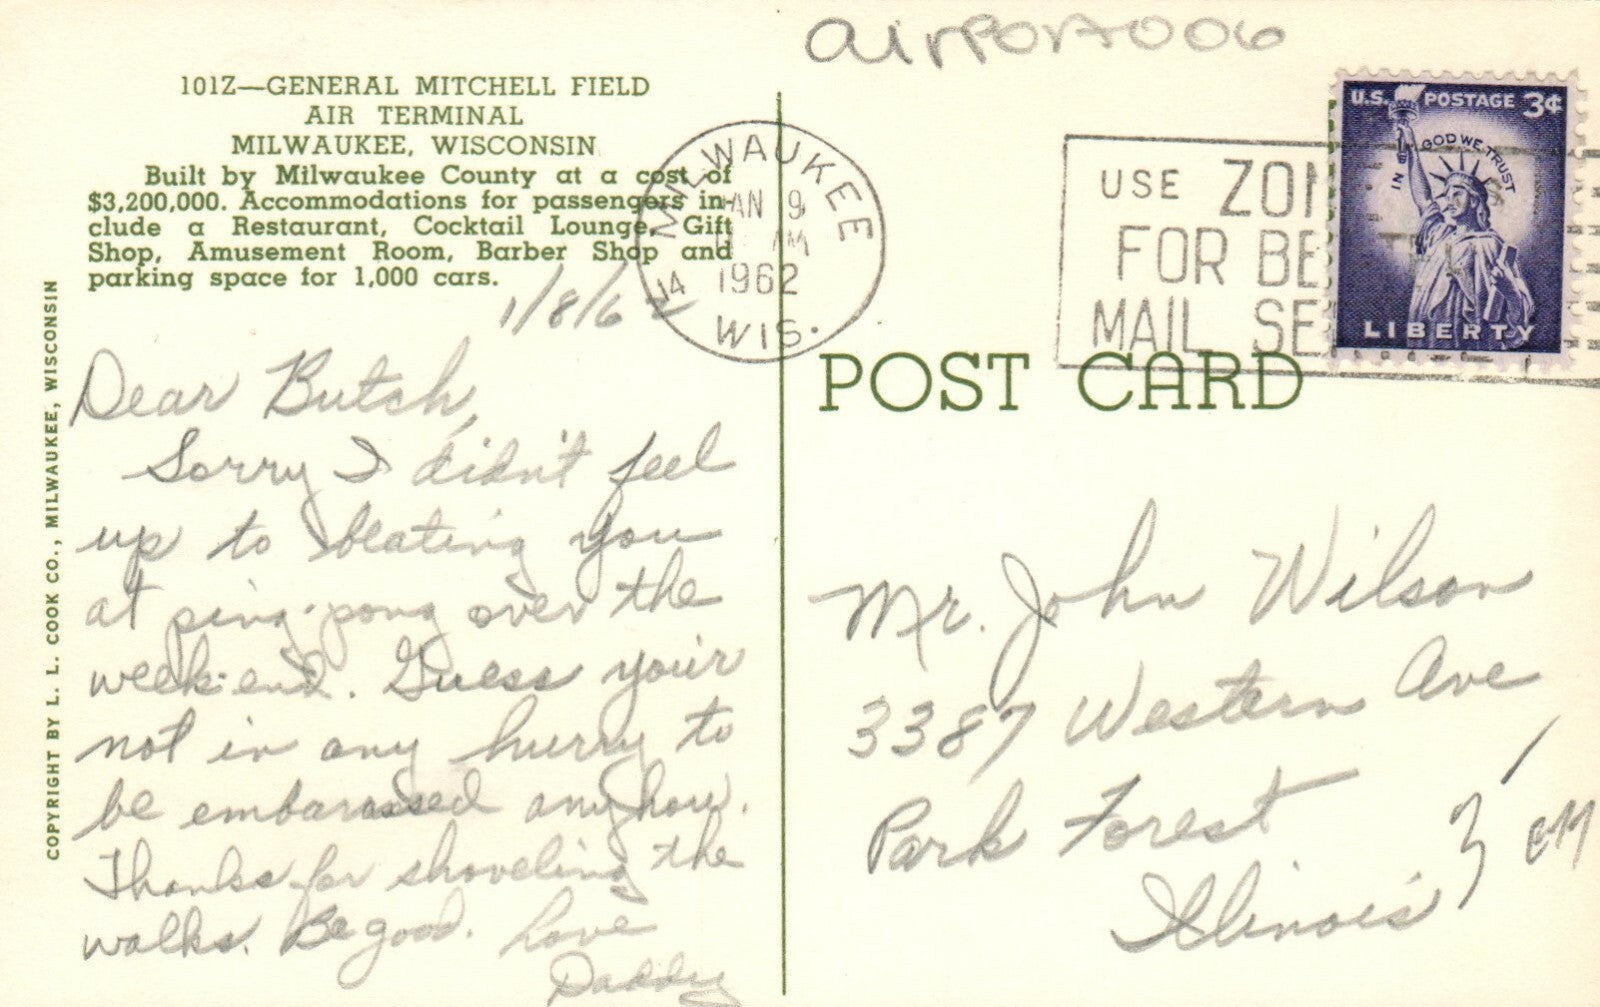 airport006
101Z—GENERAL MITCHELL FIELD
AIR TERMINAL
MILWAUKEE, WISCONSIN
Built by Milwaukee County at a cost of
$3,200,000. Accommodations for passengers in-
clude a Restaurant, Cocktail Lounge, Gift
Shop, Amusement Room, Barber Shop and
parking space for 1,000 cars.
COPYRIGHT BY L. L. COOK CO., MILWAUKEE, WISCONSIN
1/8/62
Dear Butch,
Sorry I didn't feel
up to beating you
at ping-pong over the
week-end. Guess you'r
not in any hurry to
be embarassed anyhow.
Thanks for shoveling the
walks. Be good. Love
Daddy
MILWAUKEE
JAN 9
AM
1962
14
WIS.
USE ZON
FOR BE
MAIL SE
U.S. POSTAGE 3¢
IN GOD WE TRUST
LIBERTY
POST CARD
Mr. John Wilson
3387 Western Ave
Park Forest
Illinois